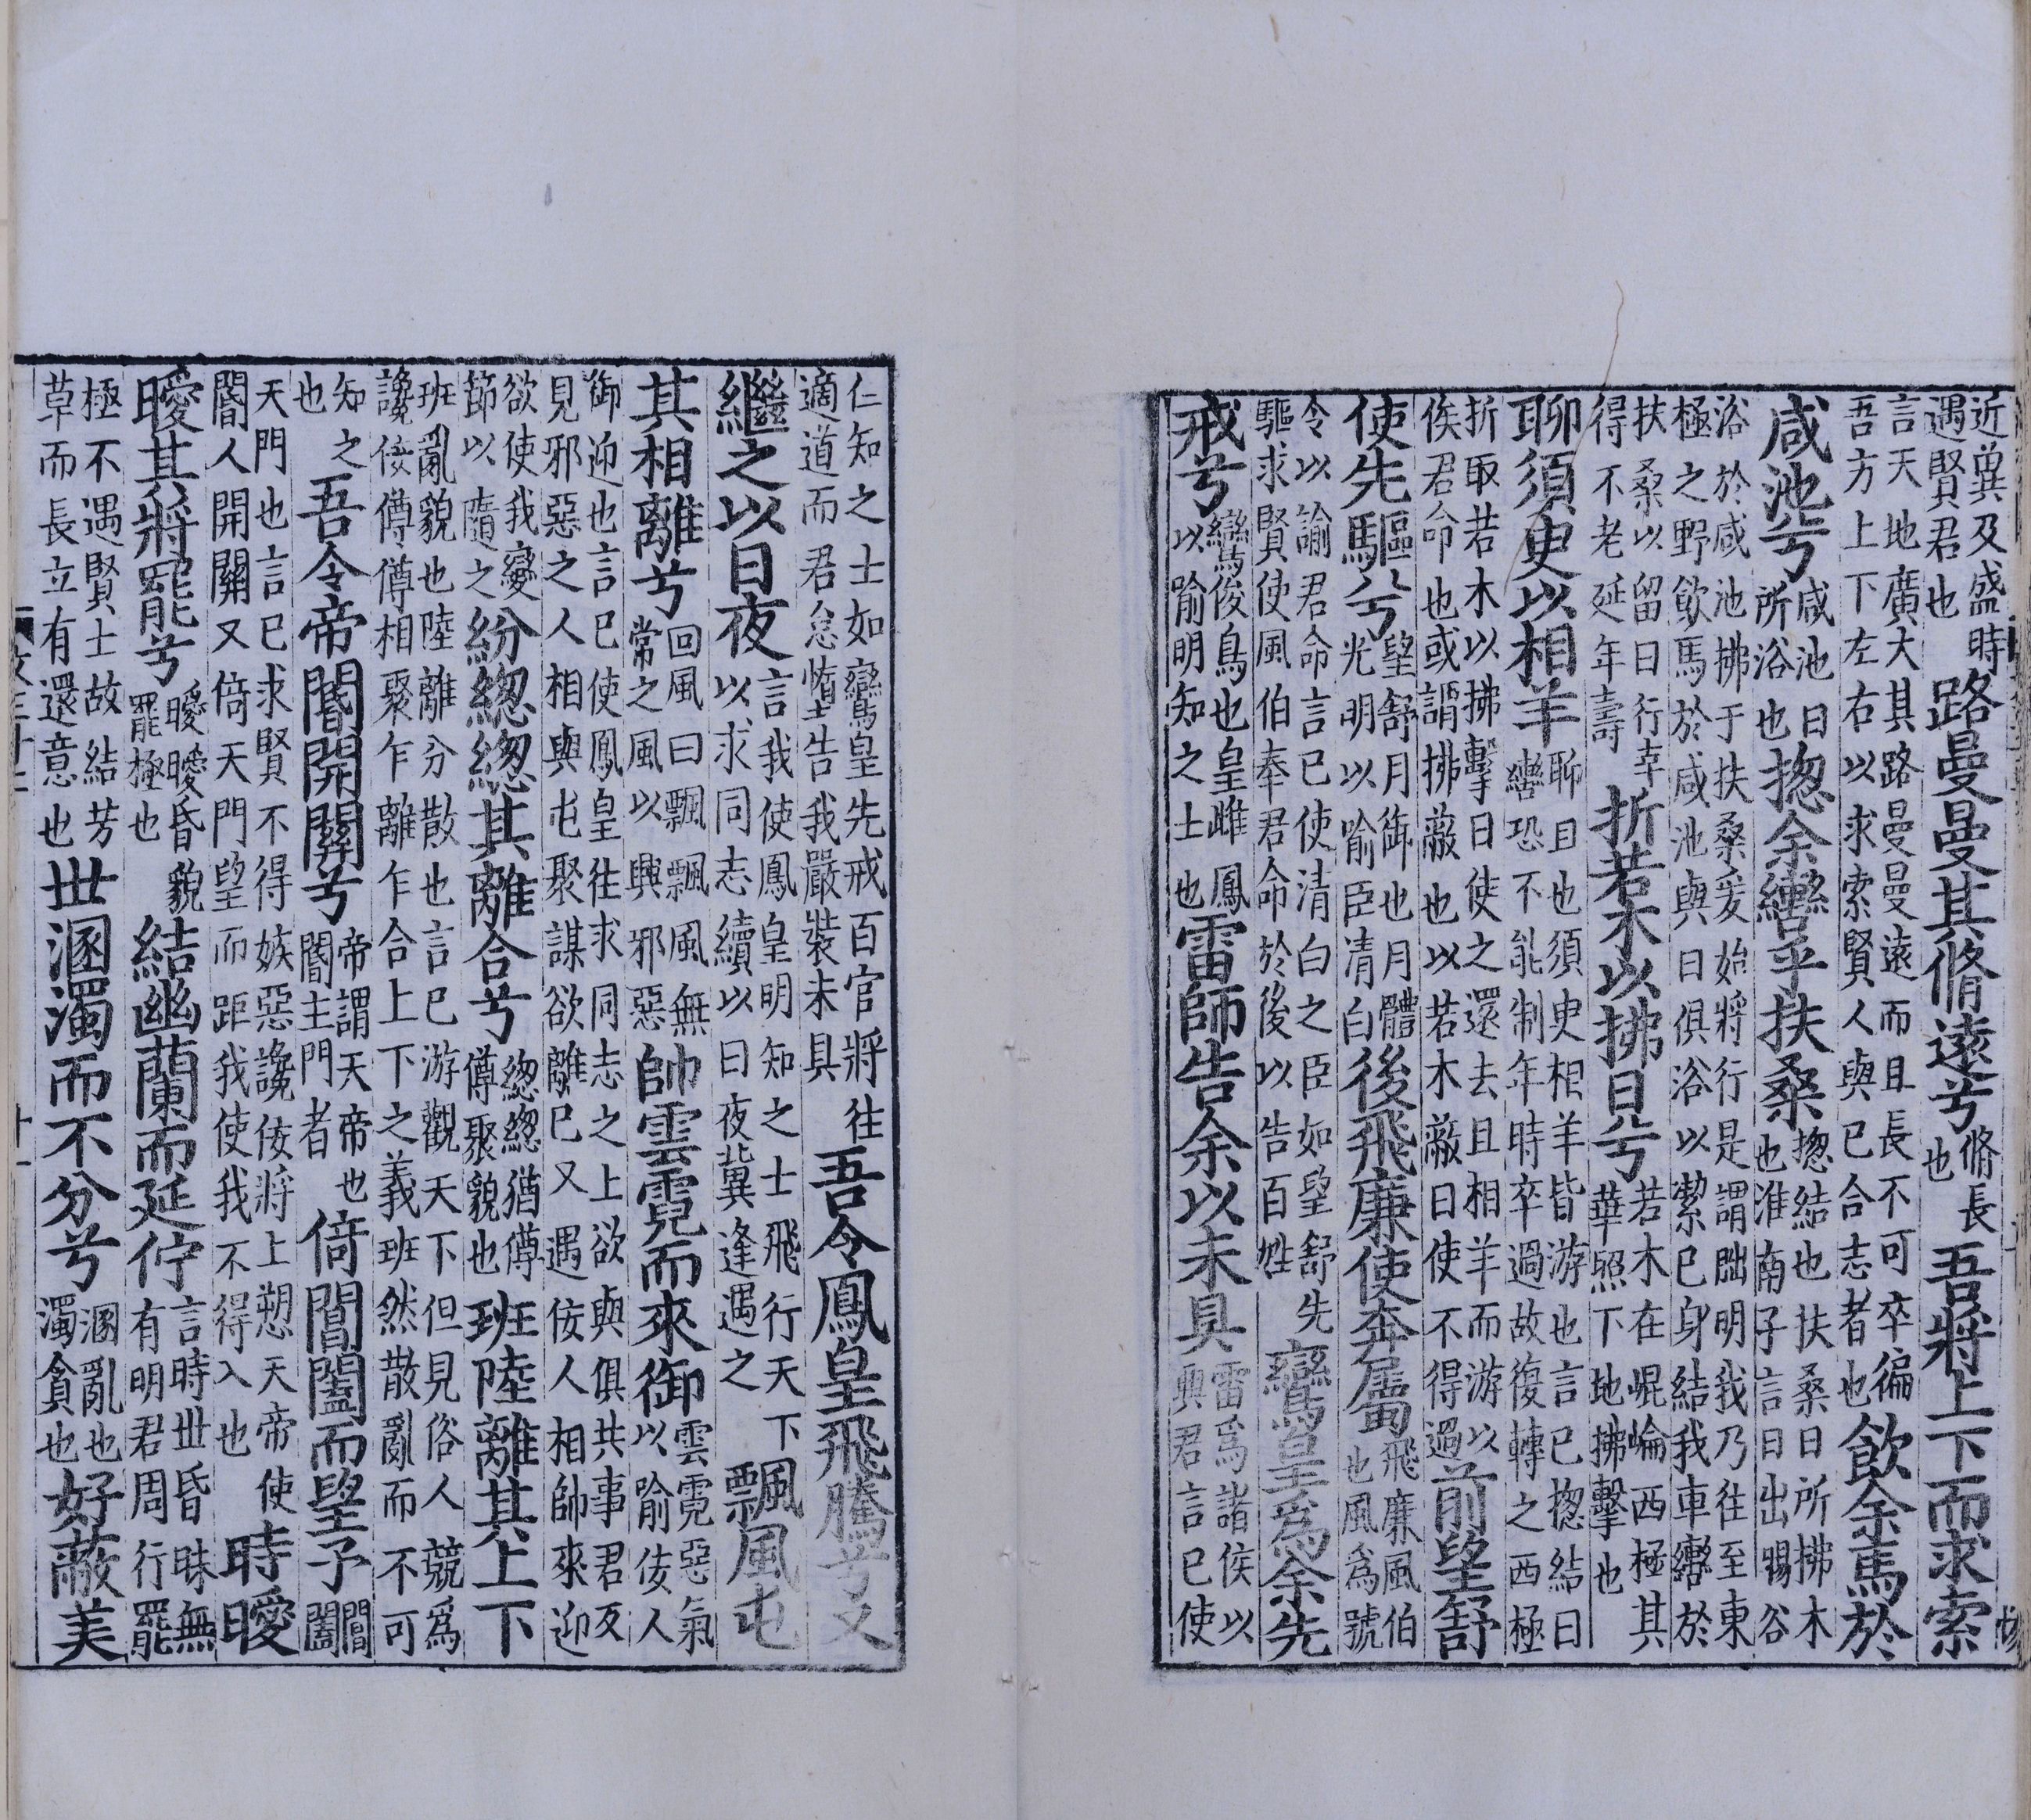 近冀及盛時遇賢君也路曼曼其脩遠兮脩長也吾將上下而求索
言天地廣大其路曼曼遠而且長不可卒徧吾方上下左右以求索賢人與已合志者也飲余馬於
咸池兮咸池日所浴也揔余轡乎扶桑揔結也扶桑日所拂木也淮南子言日出暘谷
浴於咸池拂于扶桑爰始將行是謂朏明我乃往至東極之野飲馬於咸池與日俱浴以潔已身結我車轡於
扶桑以留日行幸得不老延年壽折若木以拂日兮若木在崐崘西極其華照下地拂擊也
聊須臾以相羊聊且也須臾相羊皆游也言已揔結日轡恐不能制年時卒過故復轉之西極
折取若木以拂擊日使之還去且相羊而游以俟君命也或謂拂蔽也以若木蔽日使不得過前望舒
使先驅兮望舒月御也月體光明以喻臣清白後飛廉使奔屬飛廉風伯也風爲號
令以諭君命言已使清白之臣如望舒先驅求賢使風伯奉君命於後以告百姓鸞皇爲余先
戒兮鸞俊鳥也皇雌鳳以喻明知之士也雷師告余以未具雷爲諸侯以興君言已使
仁知之士如鸞皇先戒百官將往適道而君怠憜告我嚴裝未具吾令鳳皇飛騰兮又
繼之以日夜言我使鳳皇明知之士飛行天下以求同志續以日夜冀逢遇之飄風屯
其相離兮回風曰飄飄風無常之風以興邪惡帥雲霓而來御雲霓惡氣以喻佞人
御迎也言已使鳳皇往求同志之士欲與俱共事君反見邪惡之人相與屯聚謀欲離已又遇佞人相帥來迎
欲使我變節以隨之紛緫緫其離合兮緫緫猶僔僔聚貌也班陸離其上下
班亂貌也陸離分散也言已游觀天下但見俗人競爲讒佞僔僔相聚乍離乍合上下之義班然散亂而不可
知之也吾令帝閽開關兮帝謂天帝也閽主門者倚閶闔而望予閶闔
天門也言已求賢不得嫉惡讒佞將上愬天帝使閽人開關又倚天門望而距我使我不得入也時曖
曖其將罷兮曖曖昏貌罷極也結幽蘭而延佇言時世昏昧無有明君周行罷
極不遇賢士故結芳草而長立有還意也世溷濁而不分兮溷亂也濁貪也好蔽美